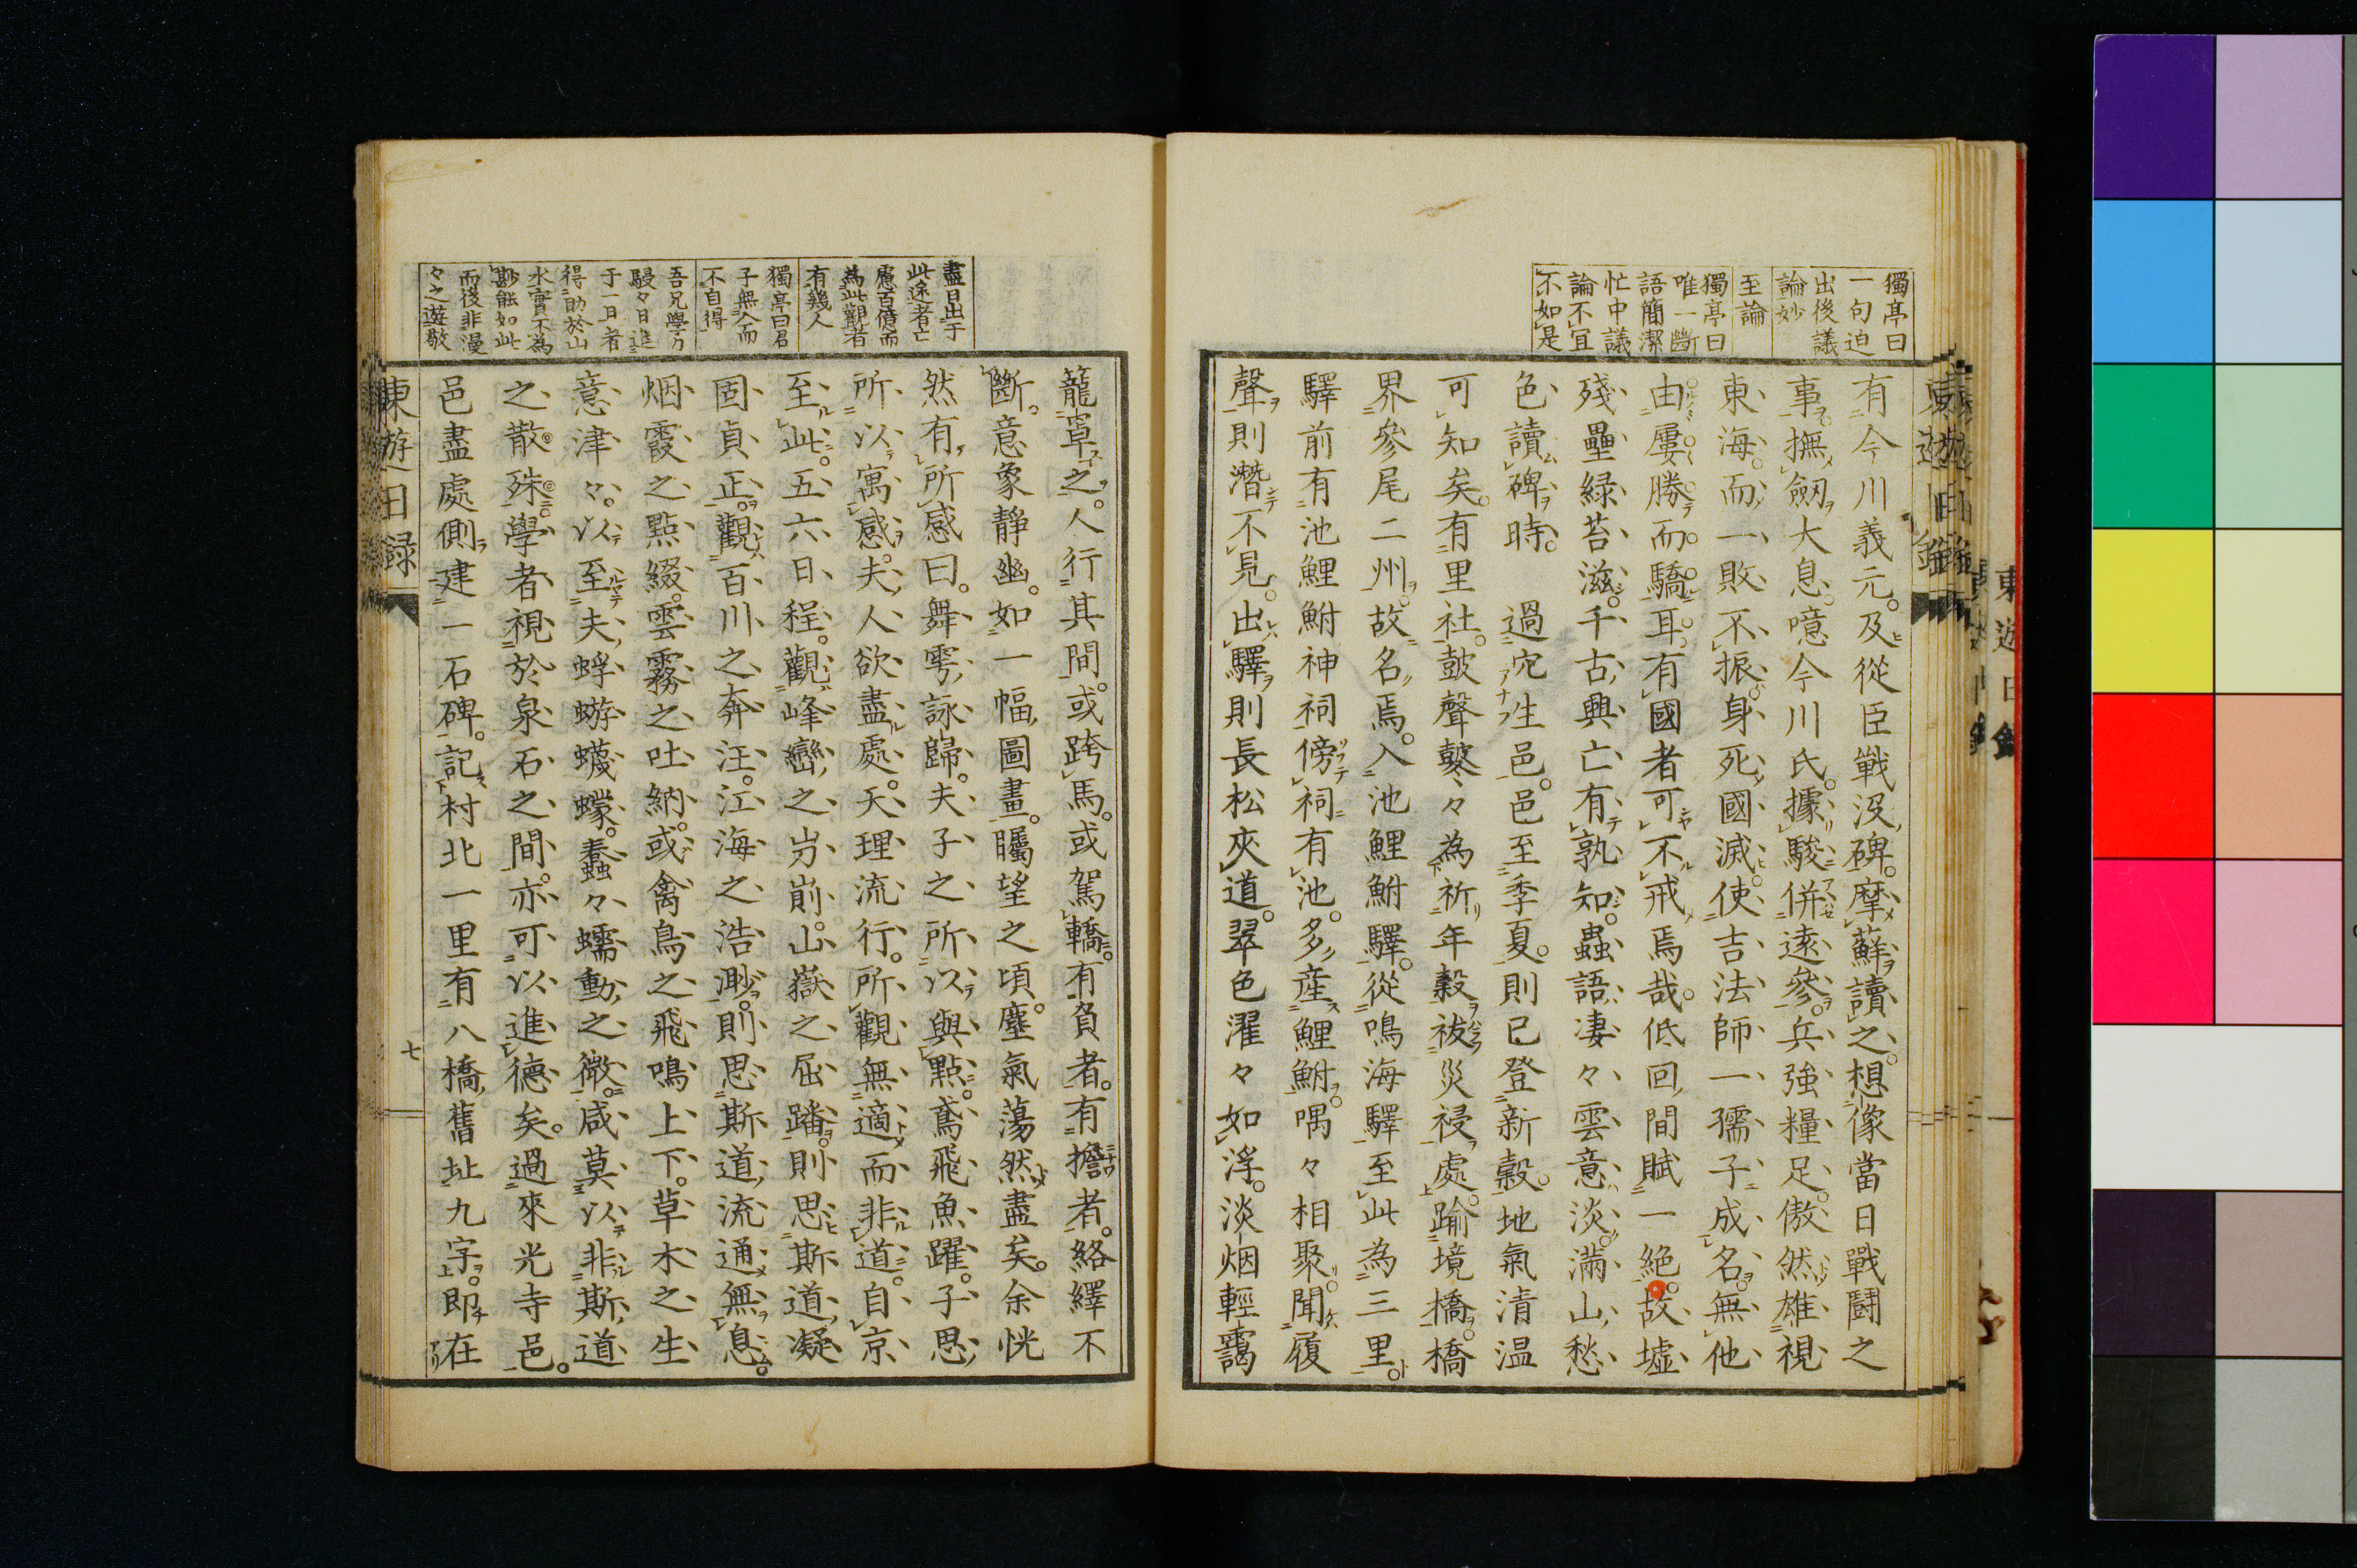 獨亭曰
一句迫
出後議
論妙
至論
獨亭曰
唯一斷
語簡潔
忙中議
論不宜
不如是
有今川義元。及從臣戰沒碑。摩蘚讀之。想像當日戰鬪之
事。撫劒大息。噫今川氏。據駿併遠參。兵強糧足。傲然雄視
東海。而一敗不振。身死國滅。使吉法師一孺子成名。無他
由屢勝而驕耳。有國者可不戒焉哉。低回間賦一絕。故墟
殘壘緑苔滋。千古興亡有孰知。蟲語凄々雲意淡。滿山愁
色讀碑時。過宛生邑。邑至季夏。則已登新穀。地氣清温
可知矣。有里社。鼓聲鼕々為祈年穀祓災祲處。踰境橋。橋
界參尾二州。故名焉。入池鯉鮒驛。從鳴海驛至此為三里。
驛前有池鯉鮒神祠。傍祠有池。多産鯉鮒。喁々相聚。聞履
聲則潛不見。出驛則長松夾道。翠色濯々如浮。淡烟輕靄
籠罩之。人行其間。或跨馬。或駕轎。有負者。有擔者。絡繹不
斷。意象静幽。如一幅圖畫。矚望之頃。塵氣蕩然盡矣。余恍
然有所感曰。舞雩詠歸。夫子之所以與點。鳶飛魚躍。子思
所以寓感。夫人欲盡處。天理流行。所觀無適而非道。自京
至此。五六日程。觀峰巒之岃崱。山嶽之屈蟠。則思斯道凝
固貞正。觀百川之奔汪。江海之浩渺。則思斯道流通無息。
烟霞之點綴。雲霧之吐納。或禽鳥之飛鳴上下。草木之生
意津々。以至夫蜉蝣蠛蠓。蠢々蠕動之微。咸莫以非斯道
之散殊。學者視於泉石之間。亦可以進德矣。過來光寺邑。
邑盡處側建一石碑。記村北一里有八橋舊址九字。即在
盡日出于
此途者亡
慮百億而
為此觀者
有幾人
獨亭曰君
子無入而
不自得
吾兄學力
駸々日進
于一日者
得助於山
水實不為
尠能如此
而後非漫
々之遊敬
東遊日録
七